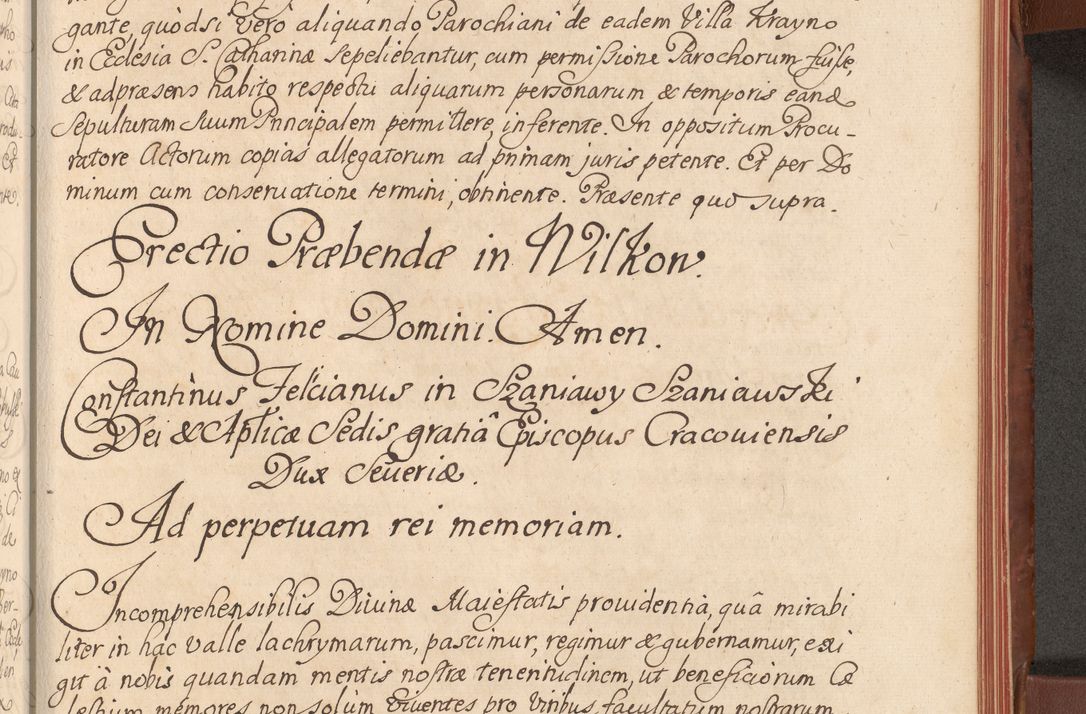 gante, quòd si Vero aliquando Parochiani de eadem Villa Krayno
in Ecclesia S. Catharinæ sepeliebantur, cum permissione Parochorum fuisse,
& ad præsens habito respectu aliquarum personarum & temporis eandē
Sepulturam suum Principalem permittere, inferente. In oppositum Procu-
ratore Actorum copias allegatorum ad primam juris petente. Et per Do
minum cum conseruatione termini, obtinente. Præsente quo supra.
Erectio Præbendæ in Wilkow.
In Nomine Domini. Amen.
Constantinus Felicianus in Szaniawy Szaniawski
Dei & Aplicæ Sedis gratiâ Episcopus Cracouiensis
Dux Seueriæ.
Ad perpetuam rei memoriam.
Incomprehensibilis Diuinæ Maiestatis prouidentia, quâ mirabi
liter in hac Valle lachrymarum, pascimur, regimur & gubernamur, exi
git à nobis quandam mentis nostræ tenentiudinem, ut beneficiorum Cæ
lestium memores non solùm Viuentes pro Viribus facultatum nostrarum